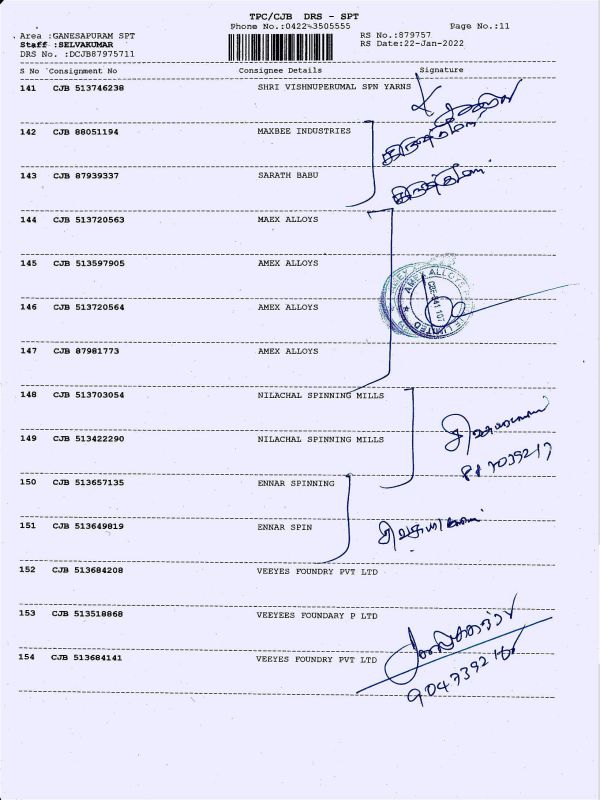 TPC/CJB DRS - SPT
Phone No.:0422-3505555 Page No.:11
Area :GANESAPURAM SPT RS No.:879757
Staff :SELVAKUMAR RS Date:22-Jan-2022
DRS No. :DCJB87975711
S No Consignment No Consignee Details Signature
141 CJB 513746238 SHRI VISHNUPERUMAL SPN YARNS
142 CJB 88051194 MAXBEE INDUSTRIES
143 CJB 87939337 SARATH BABU
144 CJB 513720563 MAEX ALLOYS
145 CJB 513597905 AMEX ALLOYS
AMEX ALLOYS
146 CJB 513720564 AMEX ALLOYS
LIMITED
147 CJB 87981773 AMEX ALLOYS
148 CJB 513703054 NILACHAL SPINNING MILLS
149 CJB 513422290 NILACHAL SPINNING MILLS
150 CJB 513657135 ENNAR SPINNING
151 CJB 513649819 ENNAR SPIN
152 CJB 513684208 VEEYES FOUNDRY PVT LTD
153 CJB 513518868 VEEYEES FOUNDARY P LTD
154 CJB 513684141 VEEYES FOUNDRY PVT LTD